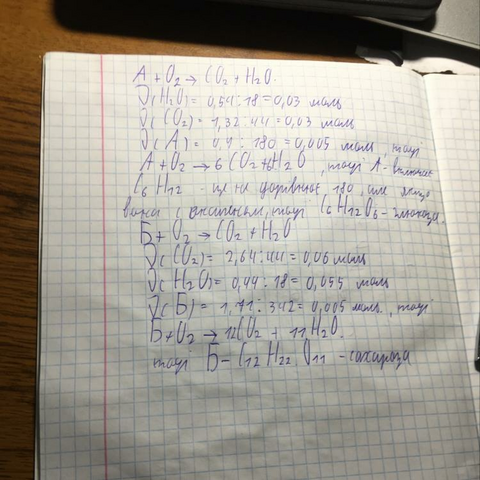 А + O₂ → CO₂ + H₂O.
ν(H₂O) = 0,54 : 18 = 0,03 моль
ν(CO₂) = 1,32 : 44 = 0,03 моль
ν(А) = 0,9 : 180 = 0,005 моль, тоді
А + O₂ → 6CO₂ + 6H₂O, тоді А - включає
C₆H₁₂ - це не дорівнює 180, але якщо
вона с оксигеном, тоді C₆H₁₂O₆ - глюкоза.
Б + O₂ → CO₂ + H₂O
ν(CO₂) = 2,64 : 44 = 0,06 моль
ν(H₂O) = 0,99 : 18 = 0,055 моль
ν(Б) = 1,71 : 342 = 0,005 моль, тоді
Б + O₂ → 12CO₂ + 11H₂O.
тоді Б - C₁₂H₂₂O₁₁ - сахароза